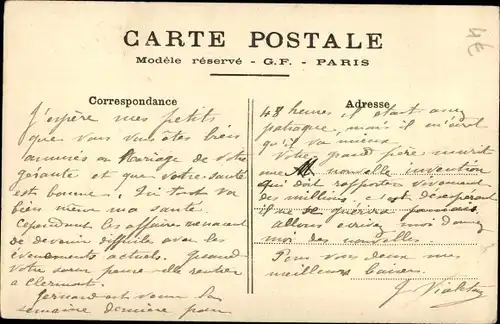 CARTE POSTALE
Modèle réservé - G.F. - PARIS
Correspondance
J'espère mes petits
que vous vous êtes bien
amusés au Mariage de votre
gérante et que votre santé
est bonne. Ici tout va
bien même ma santé.
Cependant les affaires menacent
de devenir difficiles avec les
évènements actuels. Quand
votre sœur pense-elle rentrer
à Clermont.
Fernand est venu la
semaine dernière pour
Adresse
48 heures il était assez
patraque, mais il m'écrit
qu'il va mieux
Votre grand père nourrit
une nouvelle invention
qui doit rapporter vivement
des millions, c'est désespérant
il ne se guérira jamais
allons écrivez moi donnez
moi des nouvelles
Pour vous deux mes
meilleurs baisers